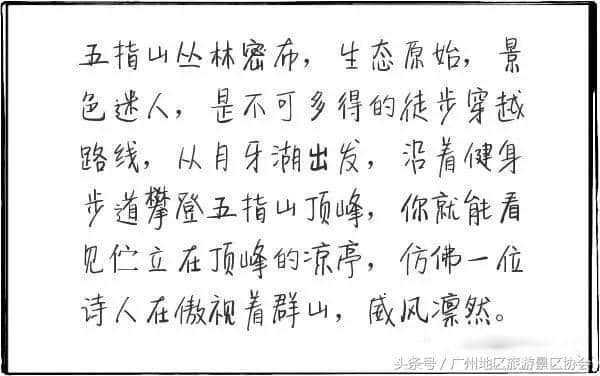 五指山丛林密布，生态原始，景
色迷人，是不可多得的徒步穿越
路线，从月牙湖出发，沿着健身
步道攀登五指山顶峰，你就能看
见伫立在顶峰的凉亭，仿佛一位
诗人在傲视着群山，威风凛然。
头条号/广州地区旅游景区协会